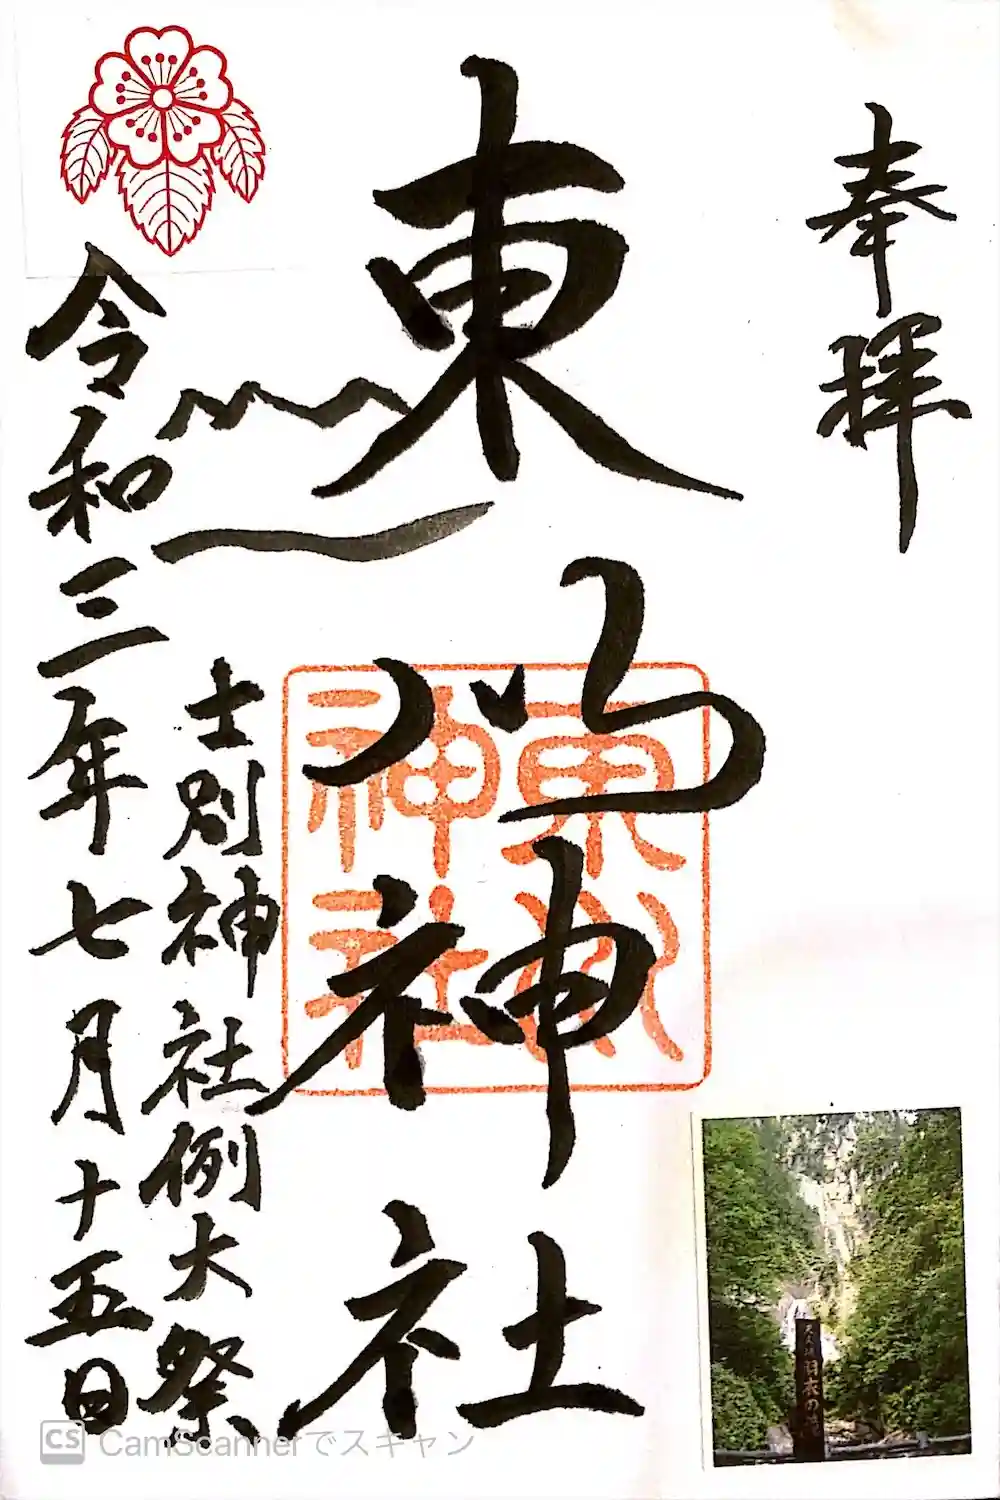 奉拝
東川神社
東川
神社
士別神社例大祭
令和三年七月十五日
天人峡 羽衣の滝
CS CamScannerでスキャン